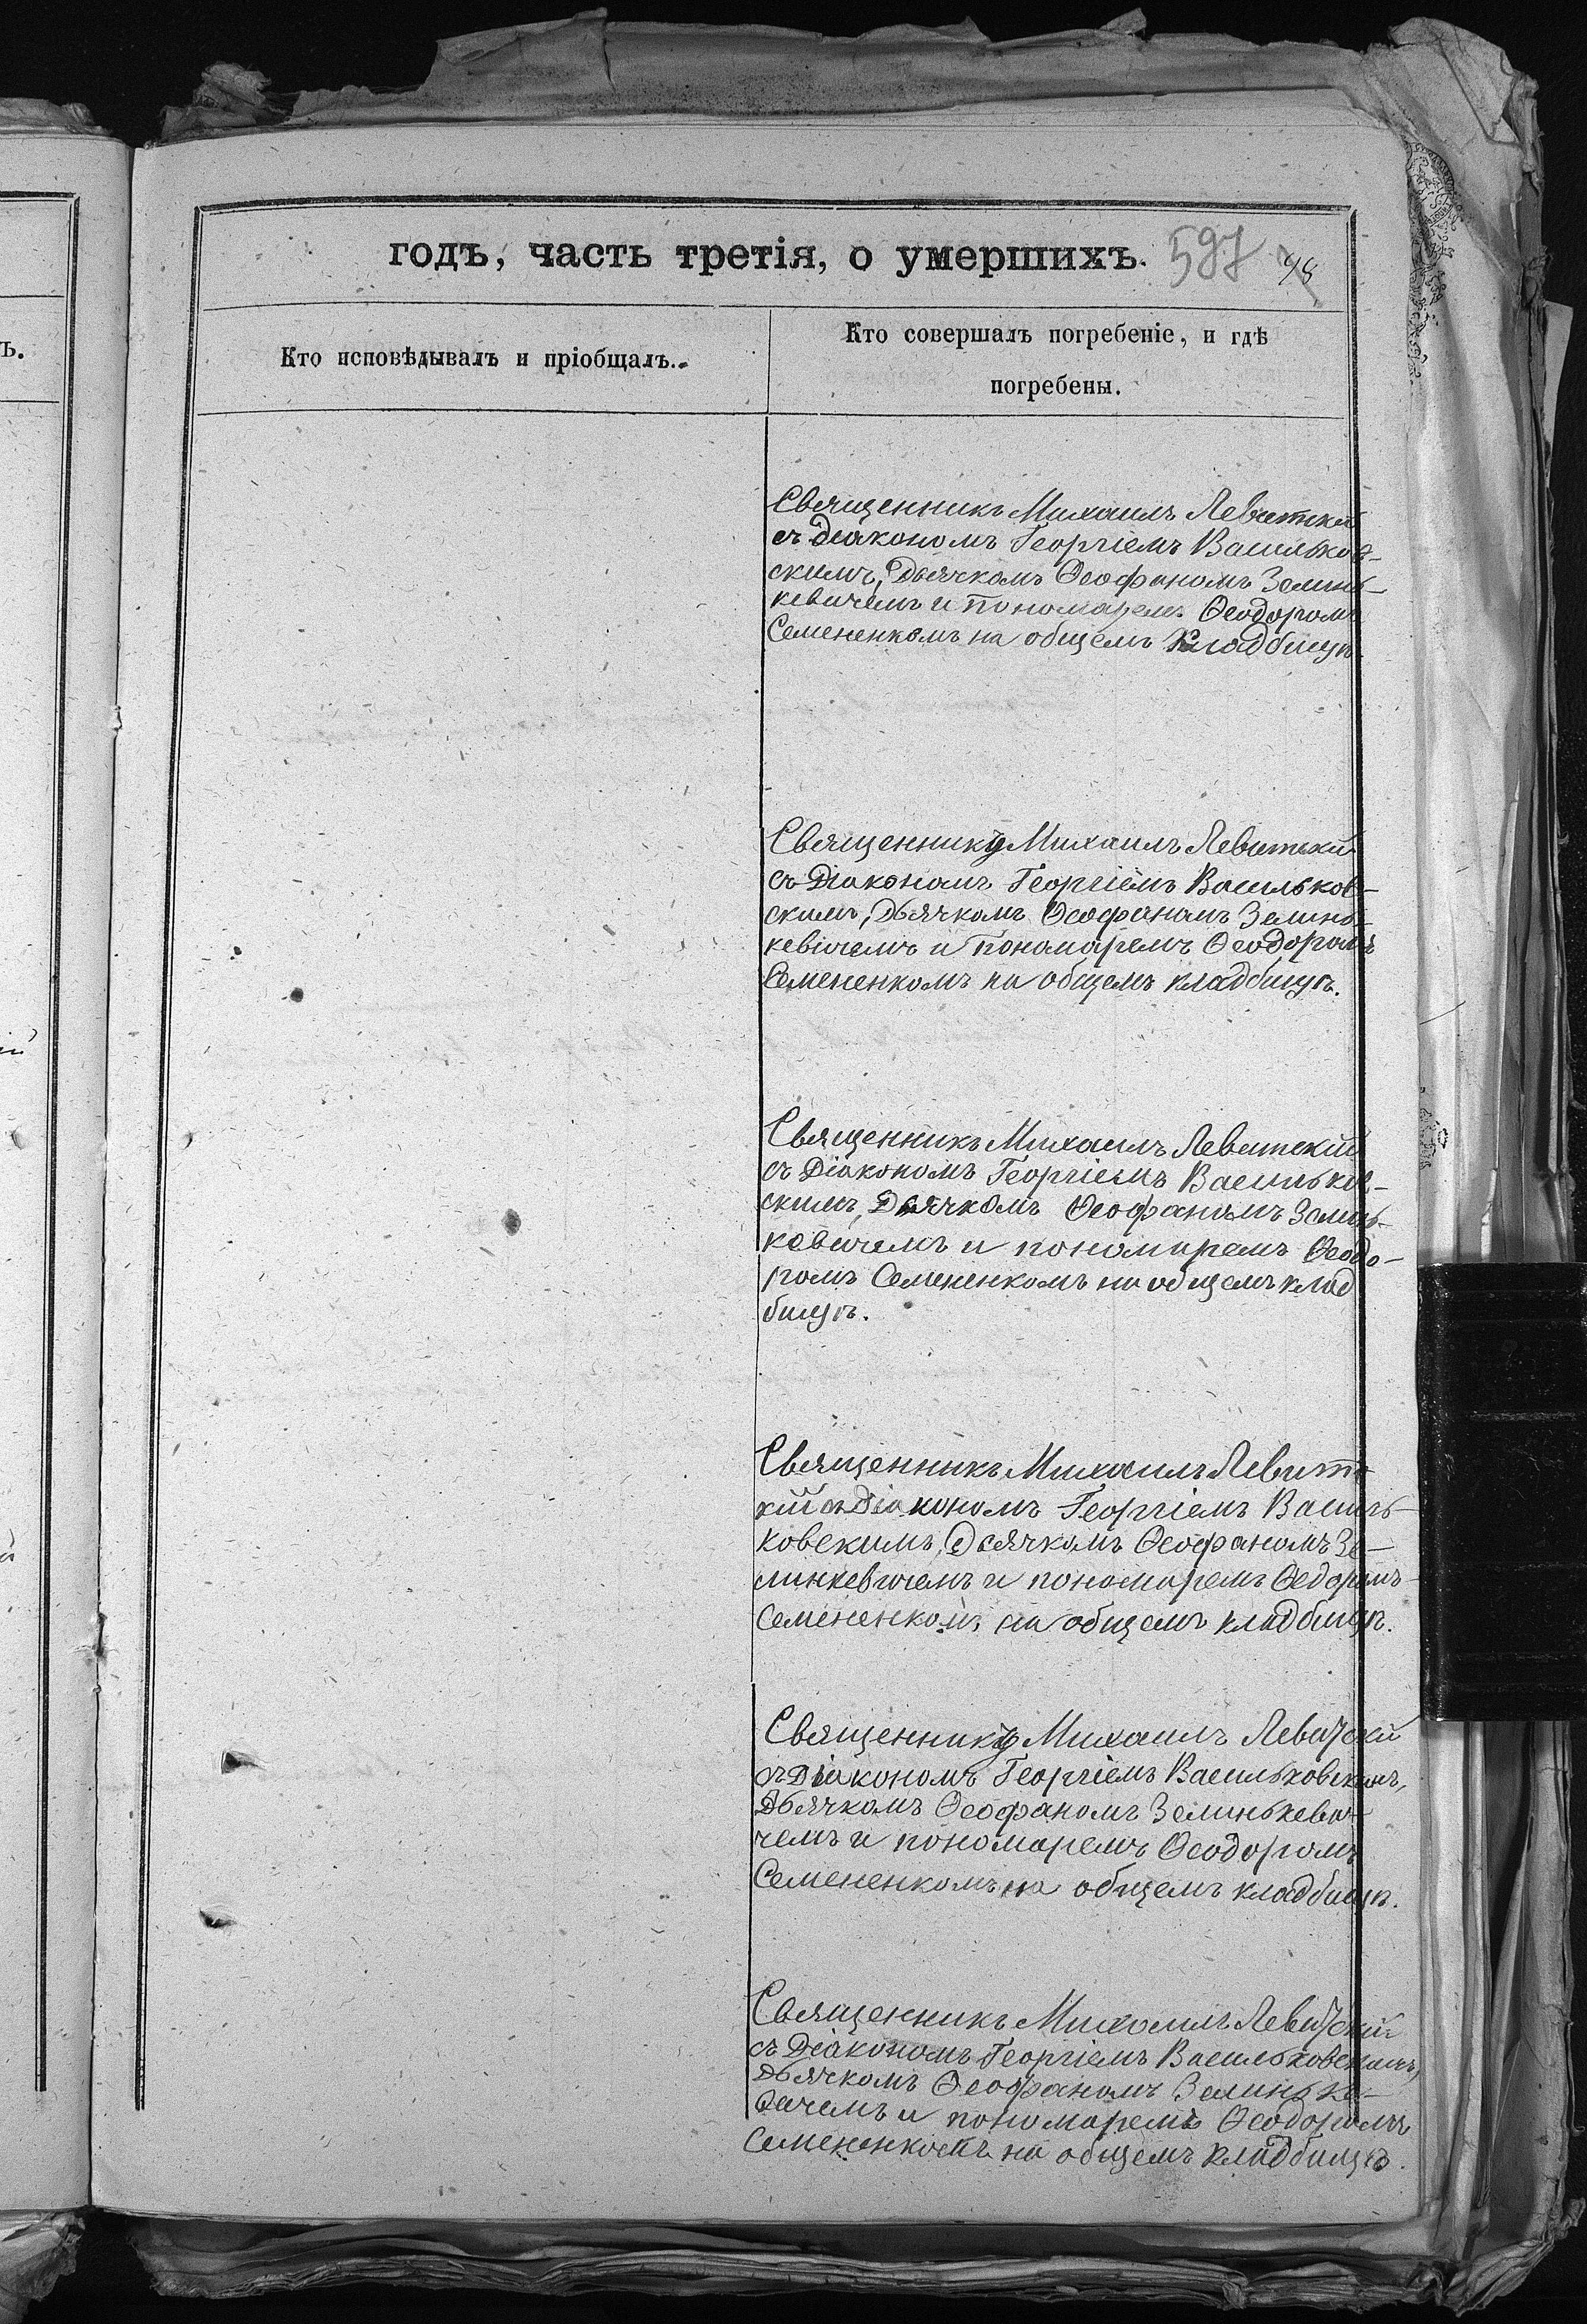 годъ, часть третія, о умершихъ. 597 98
Кто исповѣдывалъ и пріобщалъ.
Кто совершалъ погребеніе, и гдѣ
погребены.
Священникъ Михаилъ Левитскій
съ Діакономъ Георгіемъ Васильков-
скимъ, Дьячкомъ Ѳеофаномъ Зелинь-
кевичемъ и пономаремъ Ѳеодоромъ
Семененкомъ на общемъ кладбищѣ.
Священникъ Михаилъ Левитскій
съ Діакономъ Георгіемъ Васильков-
скимъ, Дьячкомъ Ѳеофаномъ Зелинь-
кевичемъ и пономаремъ Ѳеодоромъ
Семененкомъ на общемъ кладбищѣ.
Священникъ Михаилъ Левитскій
съ Діакономъ Георгіемъ Васильков-
скимъ, Дьячкомъ Ѳеофаномъ Зелинь-
кевичемъ и пономаремъ Ѳеодо-
ромъ Семененкомъ на общемъ клад
бищѣ.
Священникъ Михаилъ Левитс
кій съ Діакономъ Георгіемъ Василь-
ковскимъ, Дьячкомъ Ѳеофаномъ Зе-
линкевичемъ и пономаремъ Ѳедоромъ
Семененкомъ на общемъ кладбищѣ.
Священникъ Михаилъ Левитскій
съ Діакономъ Георгіемъ Васильковскимъ,
Дьячкомъ Ѳеофаномъ Зелинькеви-
чемъ и пономаремъ Ѳеодоромъ
Семененкомъ на общемъ кладбищѣ.
Священникъ Михаилъ Левитскій
съ Діакономъ Георгіемъ Васильковскимъ,
Дьячкомъ Ѳеофаномъ Зелинько-
вичемъ и пономаремъ Ѳеодоромъ
Семененкомъ на общемъ кладбищѣ.